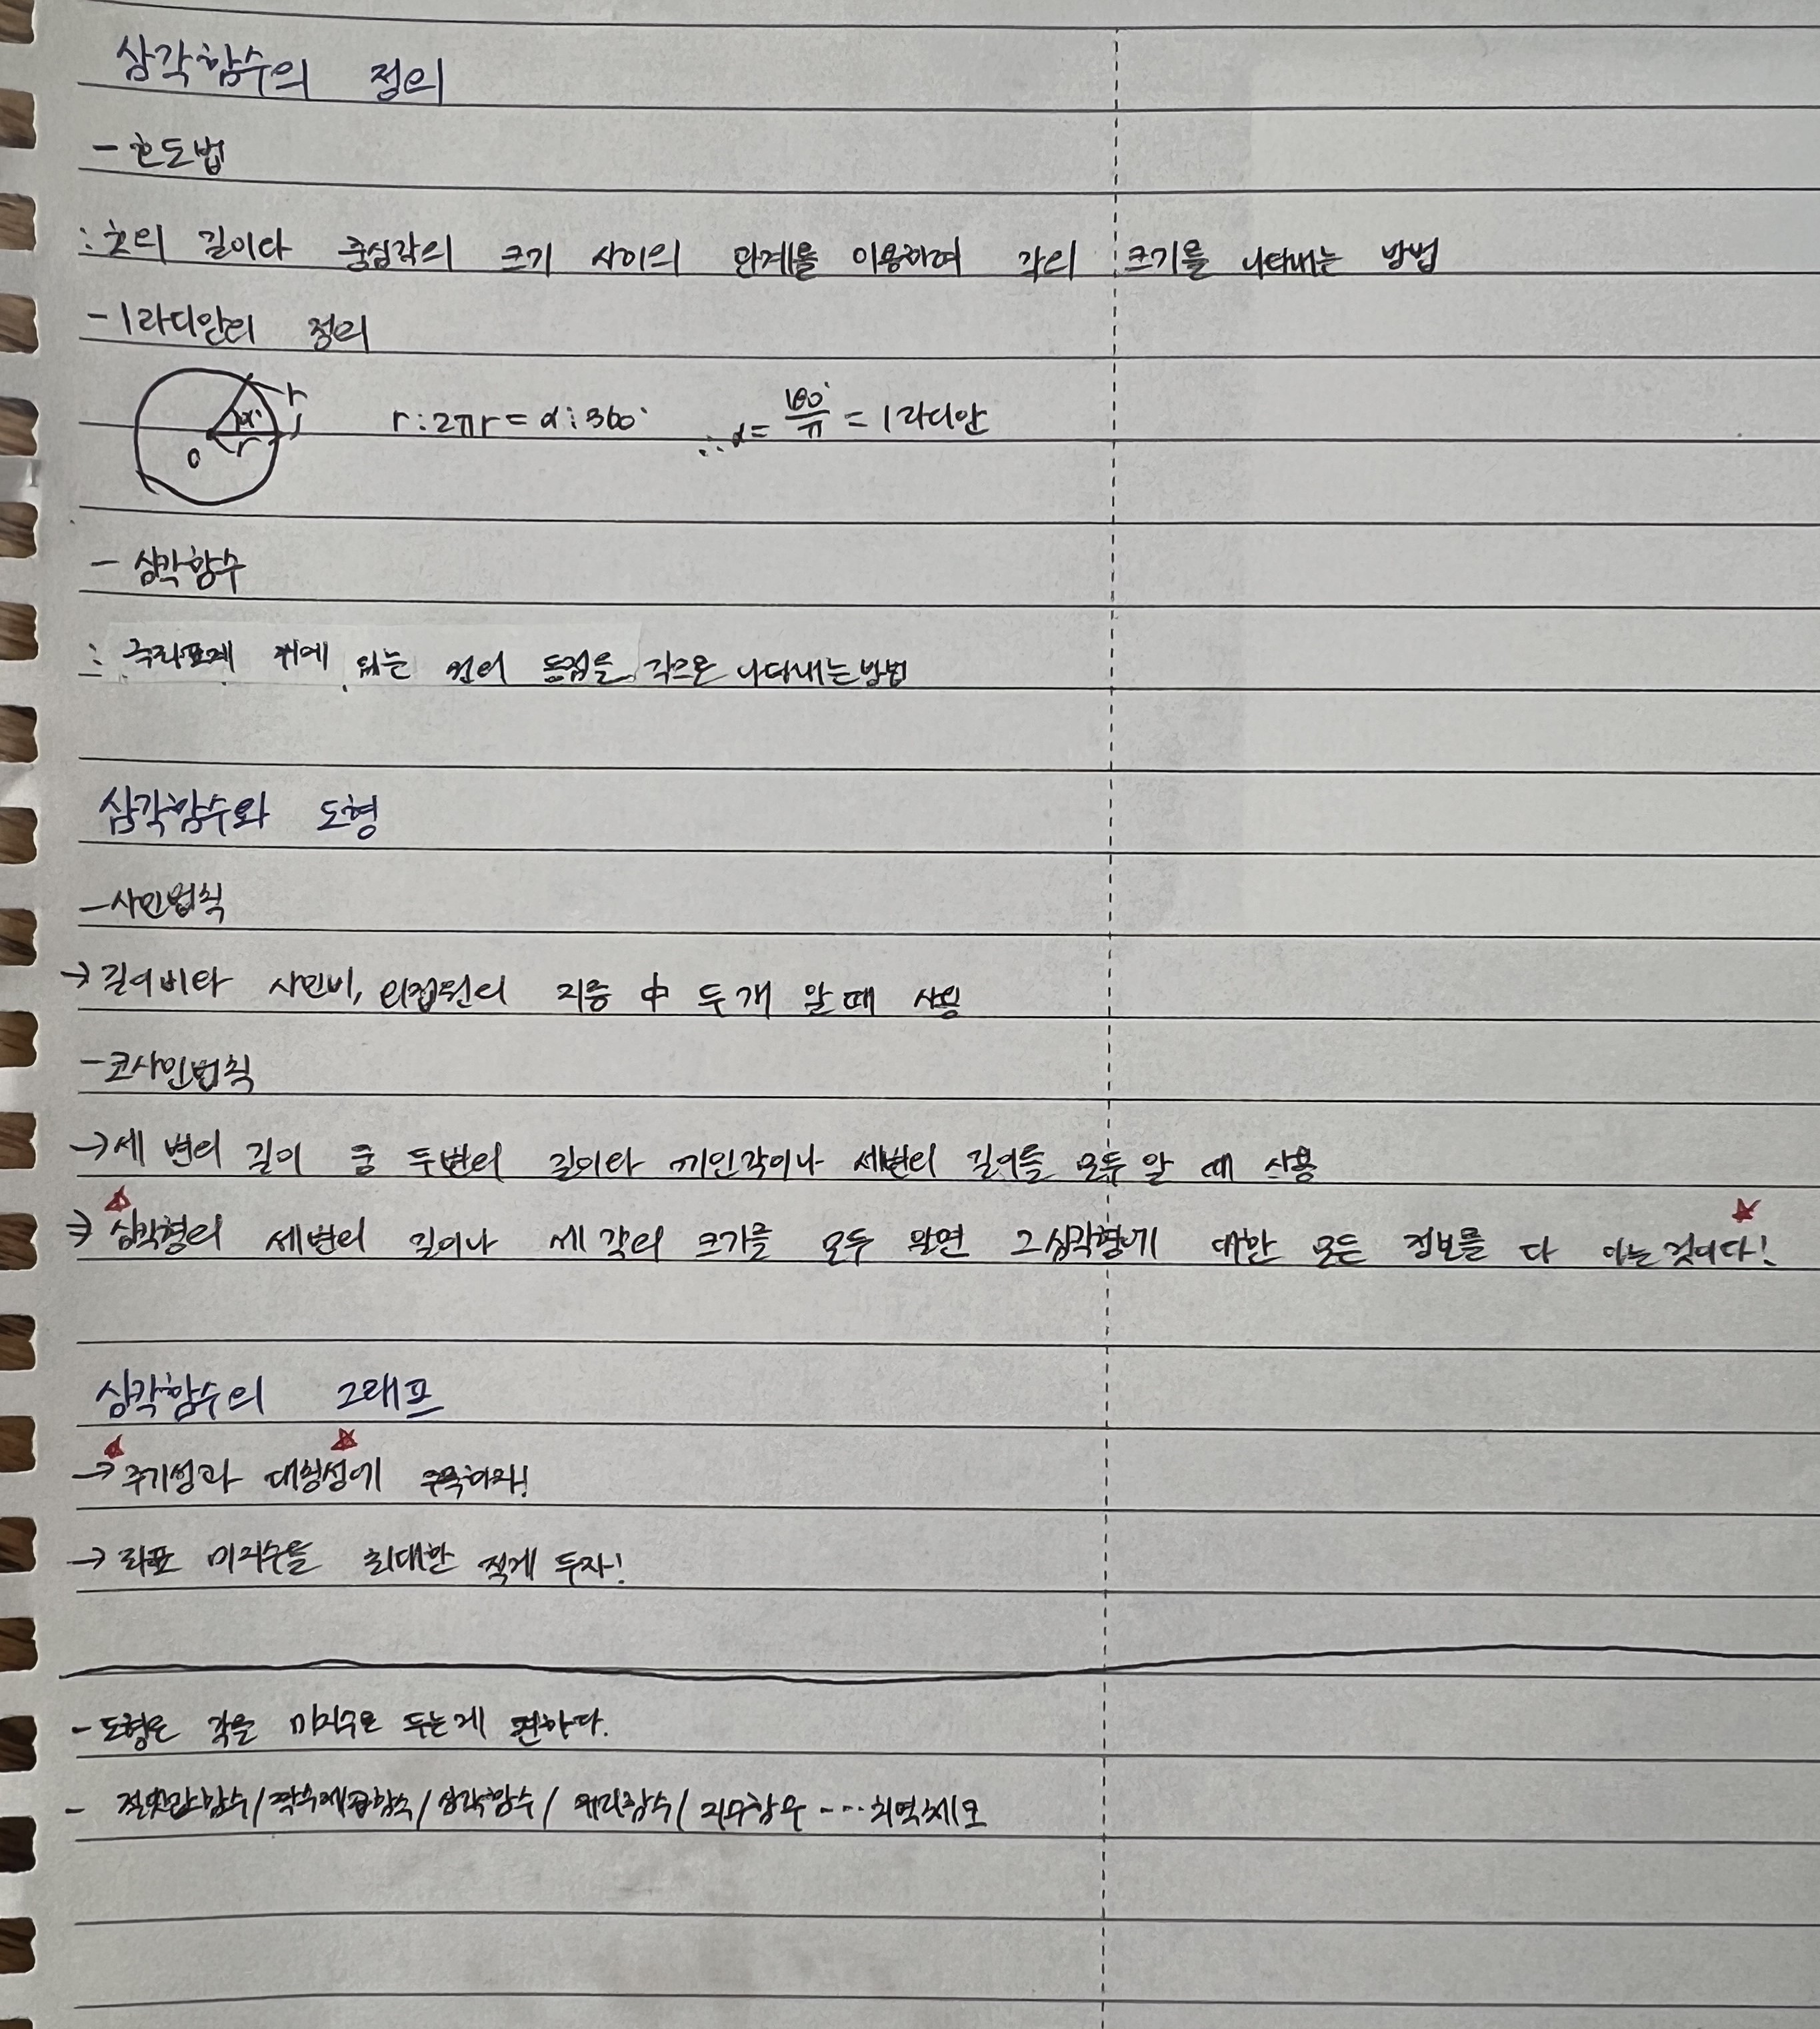 삼각함수의 정의
- 호도법
: 호의 길이와 중심각의 크기 사이의 관계를 이용하여 각의 크기를 나타내는 방법
- 1라디안의 정의
r α° r O r : 2πr = α : 360° ∴ α = 180°/π = 1라디안
- 삼각함수
: 극좌표계 위에 있는 원의 동점을 각으로 나타내는 방법
삼각함수와 도형
- 사인법칙
→ 길이비와 사인비, 외접원의 지름 中 두 개 알 때 사용
- 코사인법칙
→ 세 변의 길이 중 두변의 길이와 끼인각이나 세변의 길이를 모두 알 때 사용
⇒ 삼각형의 세변의 길이나 세 각의 크기를 모두 알면 그 삼각형에 대한 모든 정보를 다 아는 것이다!
삼각함수의 그래프
→ 주기성과 대칭성에 주목하자!
→ 좌표 미지수를 최대한 적게 두자!
- 도형은 각을 미지수로 두는게 편하다.
- 절댓값함수/짝수 /삼각함수/ /지수함수 ----